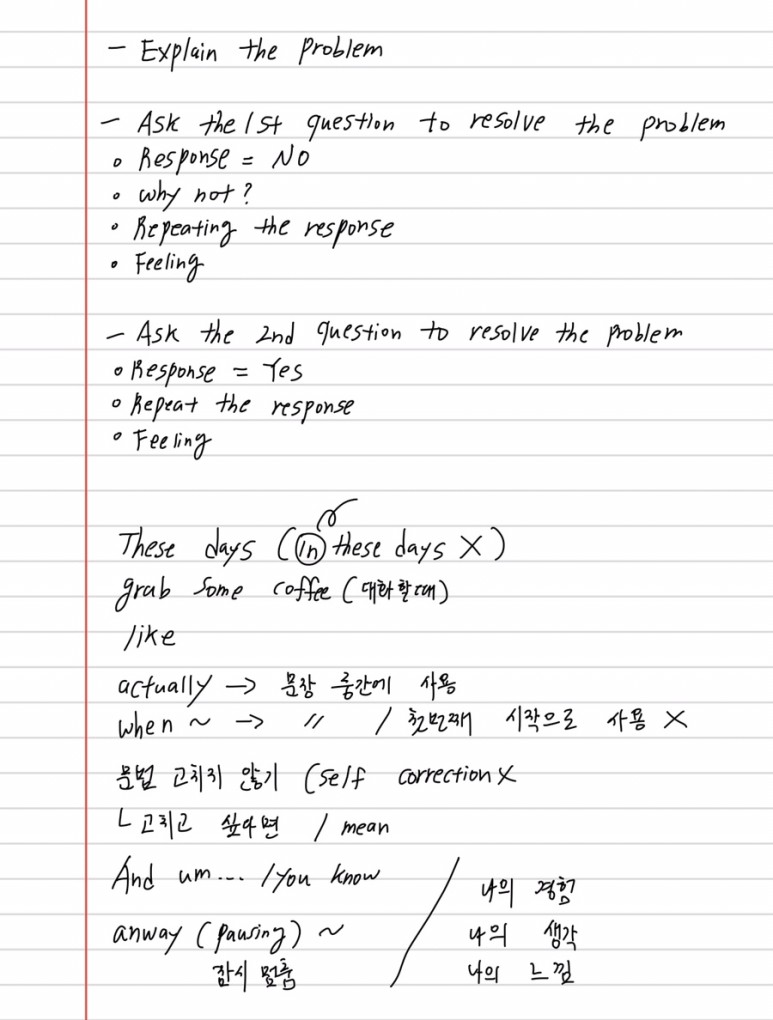 - Explain the problem
- Ask the 1st question to resolve the problem
• Response = NO
• Why not?
• Repeating the response
• Feeling
- Ask the 2nd question to resolve the problem
• Response = Yes
• Repeat the response
• Feeling
These days (In these days X)
grab some coffee (대화할때)
like
actually → 문장 중간에 사용
when ~ → 〃 / 첫번째 시작으로 사용 X
문법 고치지 않기 (self correction X
ㄴ고치고 싶다면 I mean
And um... / you know
anway (pausing) ~
잠시 멈춤
/ 나의 경험
나의 생각
나의 느낌